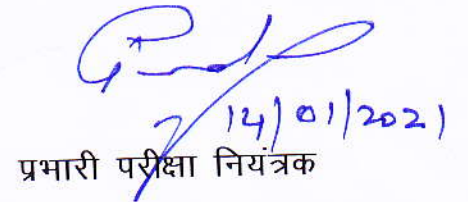 14/01/2021
प्रभारी परीक्षा नियंत्रक